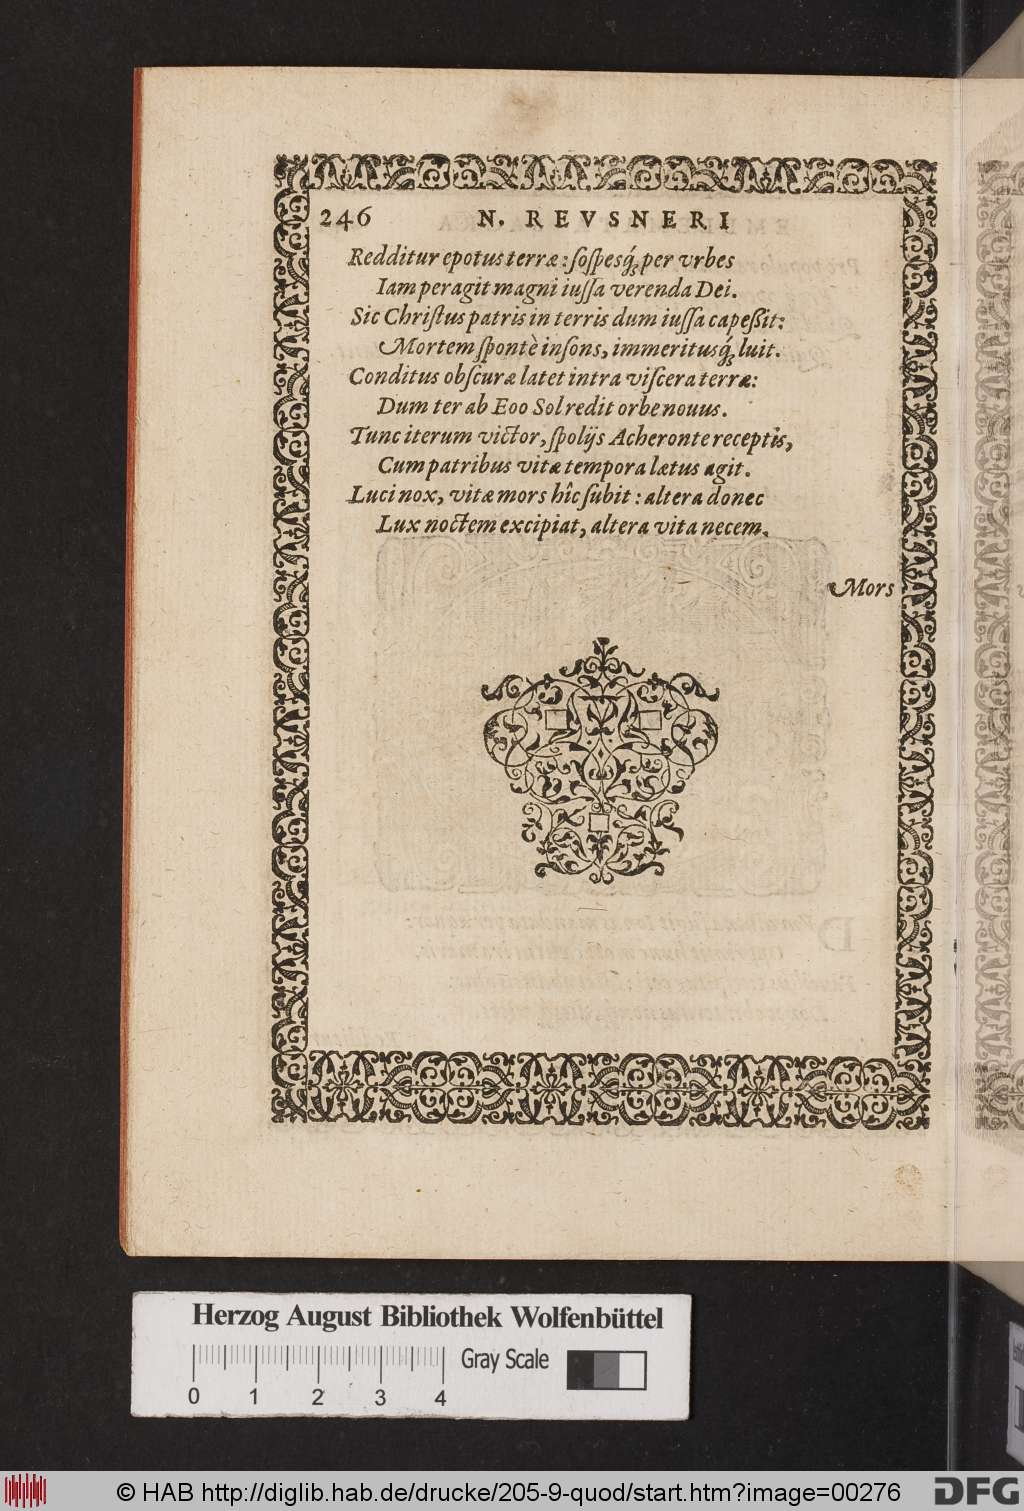 246 N. REVSNERI
Redditur epotus terræ: ſoſpesq́; per vrbes
Iam peragit magni iuſſa verenda Dei.
Sic Chriſtus patris in terris dum iuſſa capeßit:
Mortem ſpontè inſons, immeritusq́; luit.
Conditus obſcuræ latet intra viſcera terræ:
Dum ter ab Eoo Sol redit orbe nouus.
Tunc iterum victor, ſpolijs Acheronte receptis,
Cum patribus vitæ tempora lætus agit.
Luci nox, vitæ mors hîc ſubit: altera donec
Lux noctem excipiat, altera vita necem.
Mors
Herzog August Bibliothek Wolfenbüttel
Gray Scale
0 1 2 3 4
© HAB http://diglib.hab.de/drucke/205-9-quod/start.htm?image=00276
DFG